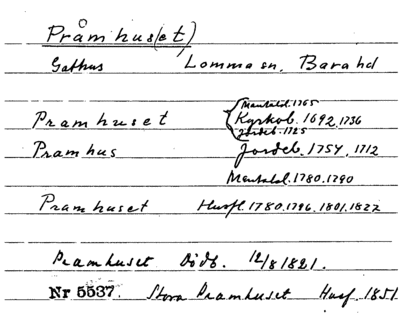 Pråmhus(et)
Gathus Lomma sn, Bara hd
Mantalsl. 1765
Pramhuset Kyrkob. 1692, 1736
Jordeb. 1725
Pramhus Jordeb. 1754, 1712
Mantalsl. 1780, 1790
Pramhuset Husfl. 1780, 1796, 1801, 1822
Pramhuset Dödb. 12/8 1821.
Nr 5537. Stora Pramhuset Husf. 1851